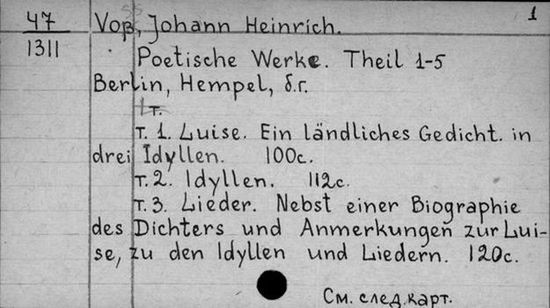 1
47
1311
Voß, Johann Heinrich.
Poetische Werke. Theil 1-5
Berlin, Hempel, б.г.
1 т.
т. 1. Luise. Ein ländliches Gedicht. in
drei Idyllen. 100с.
т. 2. Idyllen. 112с.
т. 3. Lieder. Nebst einer Biographie
des Dichters und Anmerkungen zur Lui-
se, zu den Idyllen und Liedern. 120с.
См. след. карт.